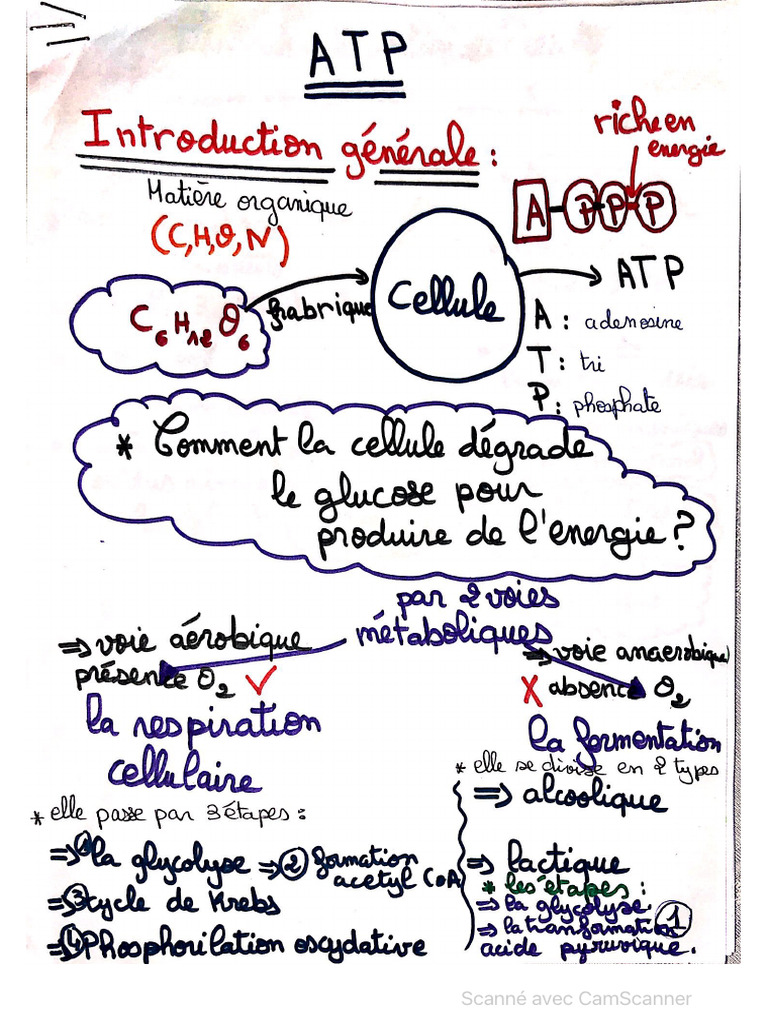 ATP
Introduction générale :
riche en
energie
Matière organique
(C,H,O,N)
A P P P
C6H12O6
fabrique
Cellule
ATP
A : adenosine
T : tri
P : phosphate
* Comment la cellule dégrade
le glucose pour
produire de l'energie ?
par 2 voies
métaboliques
⇒ voie aérobique
présence O2 ✓
la respiration
cellulaire
* elle passe par 3 étapes :
⇒ ① la glycolyse ⇒ ② formation
acetyl CoA
⇒ ③ cycle de Krebs
⇒ ④ Phosphorilation oscydative
⇒ voie anaerobique
X absence O2
la fermentation
* elle se divise en 2 types
⇒ alcoolique
⇒ lactique
* les étapes :
⇒ la glycolyse
⇒ la transformation
acide pyruvique.
①
Scanné avec CamScanner